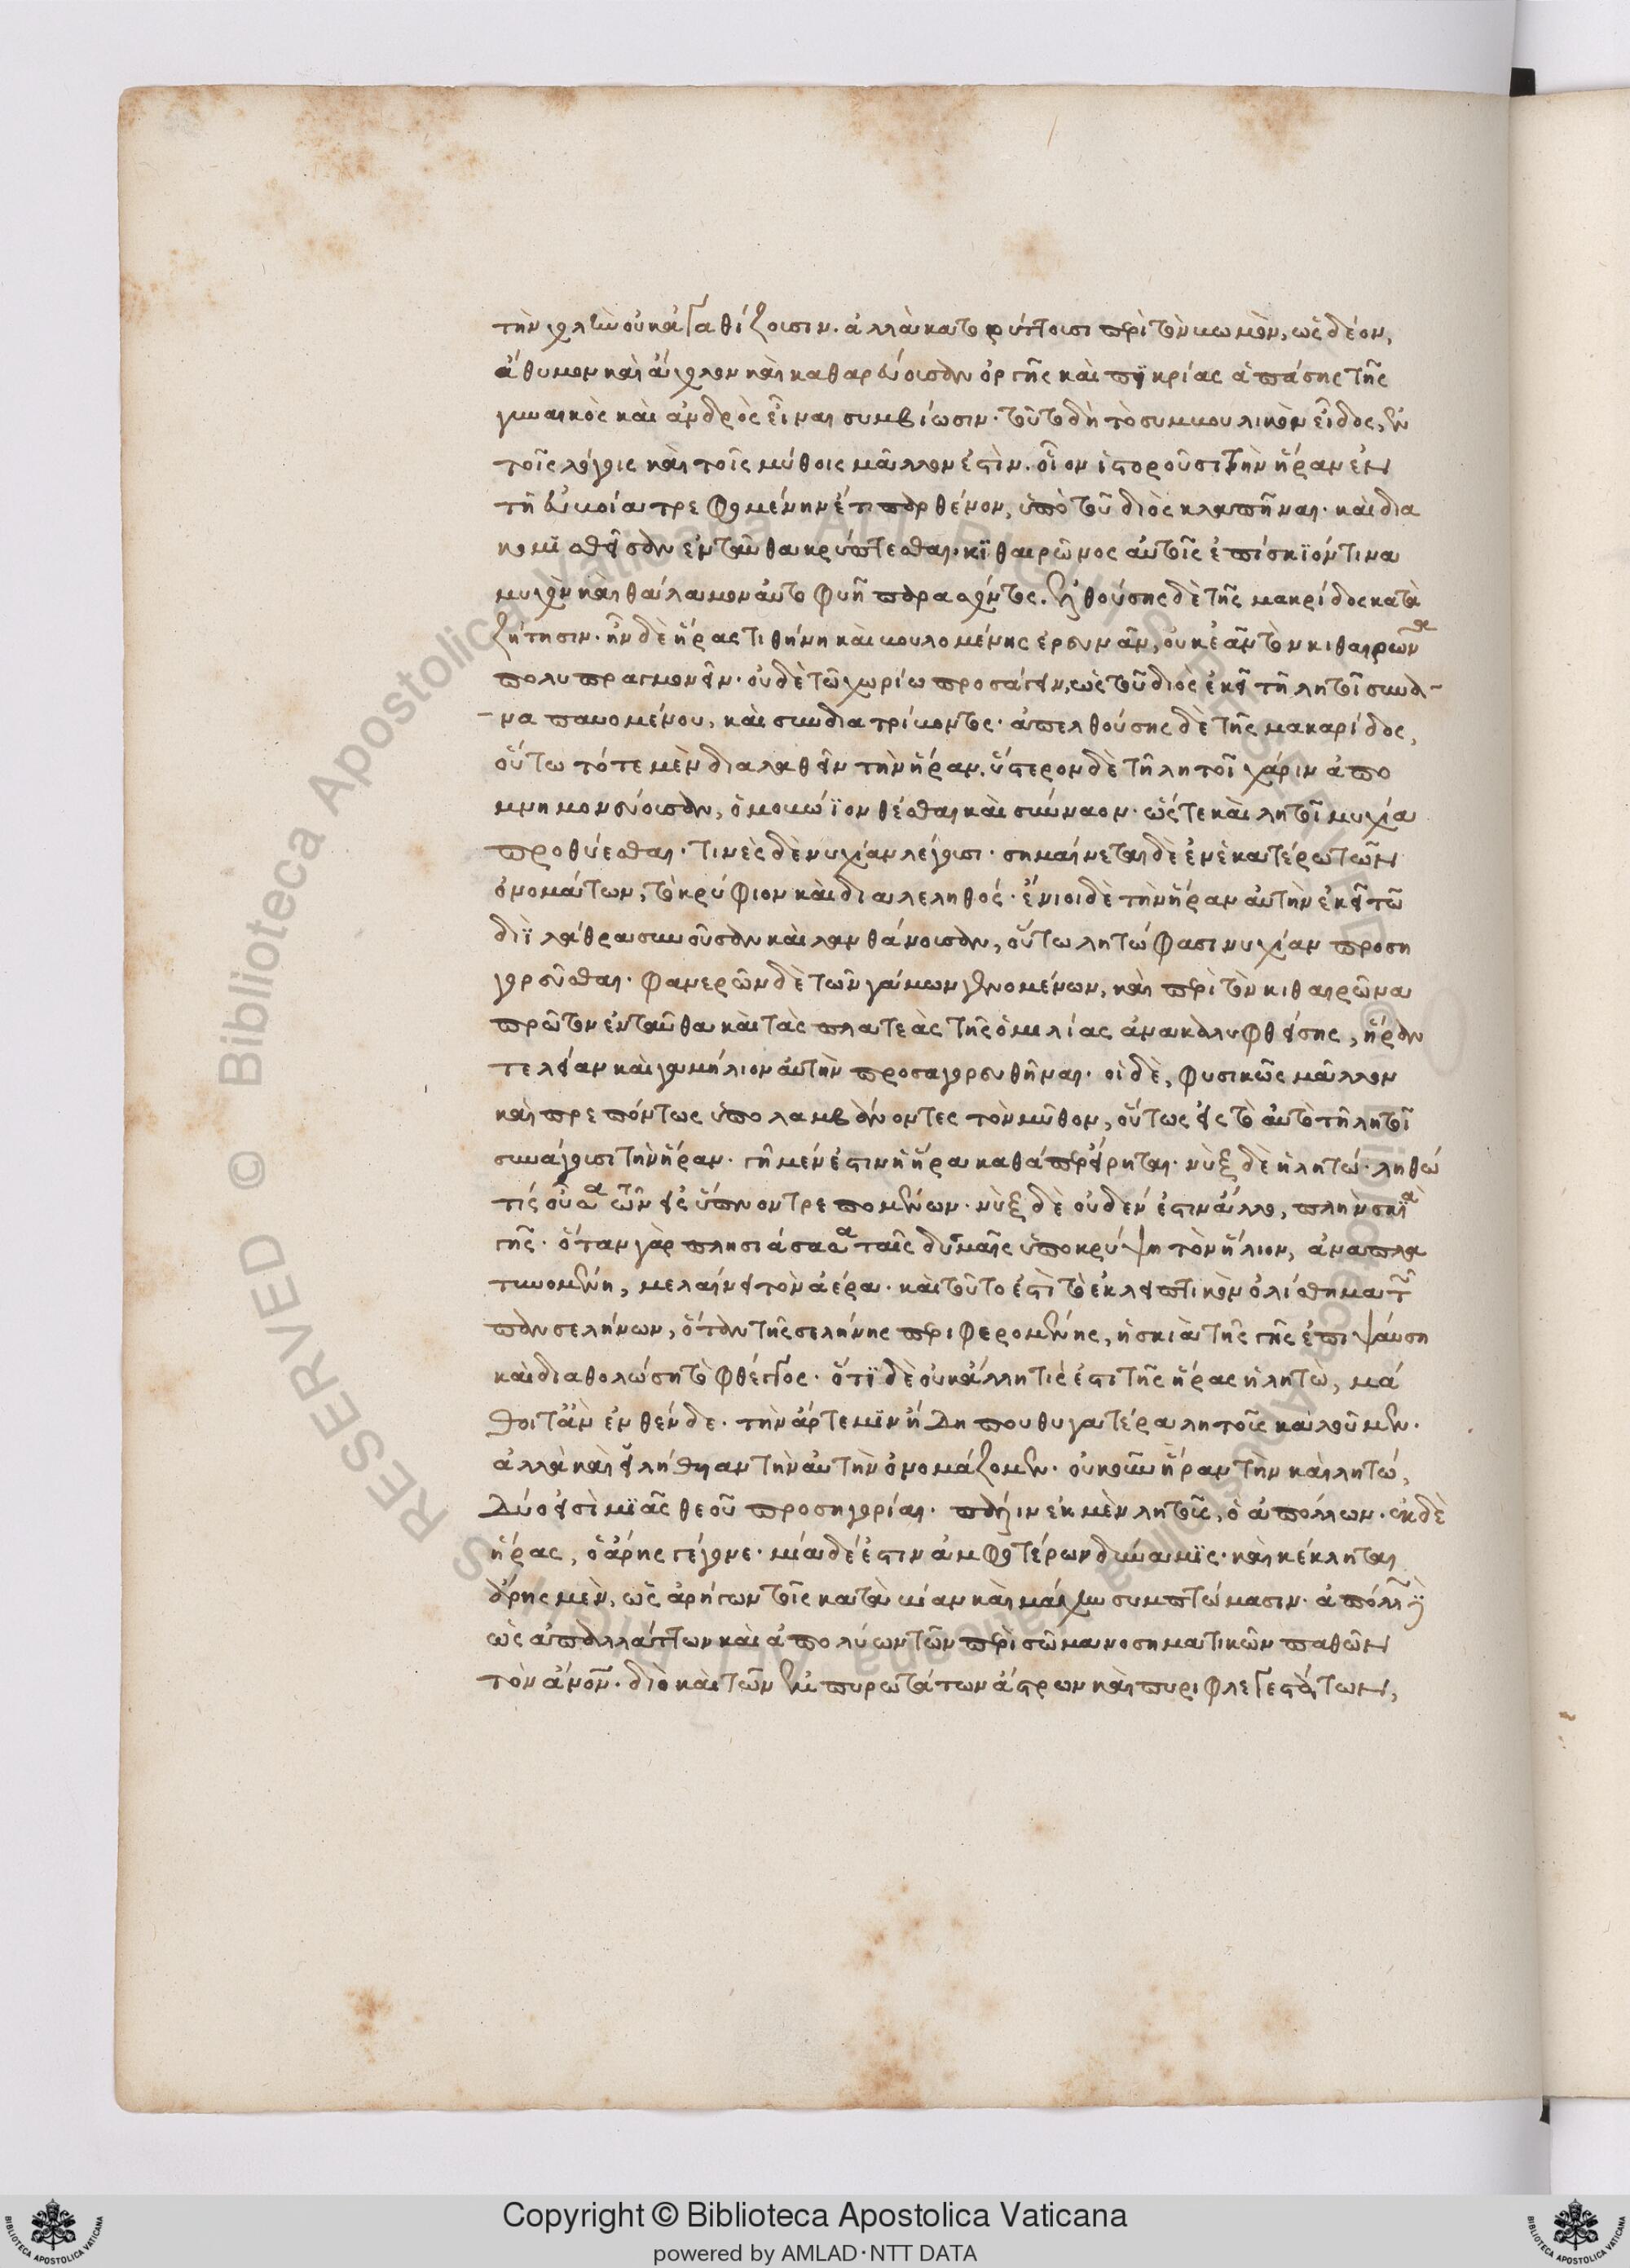 τὴν χολὴν οὐ καταγίζουσιν. ἀλλὰ κατορύττουσι περὶ τὸν βωμὸν, ὡς δέον,
ἄθυμον καὶ ἄχολον καὶ καθαρεύουσαν ὀργῆς καὶ πικρίας ἁπάσης τῆς
γυναικὸς καὶ ἀνδρὸς εἶναι συμβίωσιν. τοῦτο δὴ τὸ συμβουλικὸν εἶδος, ἐν
τοῖς λόγοις καὶ τοῖς μύθοις μᾶλλον ἐστὶν. οἷον ἱστοροῦσι τὴν ἥραν ἐν
τῇ εὐβοία τρεφομένην ἔτι παρθένον, ὑπὸ τοῦ διὸς κλαπῆναι. καὶ δια
κομισθεῖσαν ἐνταῦθα κρύπτεσθαι. κιθαιρῶνος αὐτοῖς ἐπίσκιόν τινα
μυχὸν καὶ θάλαμον αὐτοφυῆ παρασχόντος. ἐλθούσης δὲ τῆς μακρίδος κατὰ
ζήτησιν. ἦν δὲ ἥρας τιθήνη καὶ βουλομένης ἐρευνᾶν, οὐκ ἐᾶν τὸν κιθαιρῶνα
πολυπραγμονεῖν. οὐδὲ τῶ χωρίω προσάγειν, ὡς τοῦ διὸς ἐκεῖ τῇ λητοῖ συνα-
-ναπαυομένου, καὶ συνδιατρίβοντος. ἀπελθούσης δὲ τῆς μακαρίδος,
οὕτω τότε μὲν διαλαθεῖν τὴν ἥραν. ὕστερον δὲ τῇ λητοῖ χάριν ἀπο
μνημονεύουσαν, ὁμοβώϊον θέσθαι καὶ σύνναον. ὥστε καὶ λητοῖ μυχία
προθύεσθαι. τινὲς δὲ νυχίαν λέγουσι. σημαίνεται δὲ ἐν ἑκατέρω τῶν
ὀνομάτων, τὸ κρύφιον καὶ διαλεληθός. ἔνιοι δὲ τὴν ἥραν αὐτὴν ἐκεῖ τῶ
διῒ λάθρα συνοῦσαν καὶ λανθάνουσαν, οὕτω λητώ φασι νυχίαν προση
γορεῦσθαι. φανερῶν δὲ τῶν γάμων γενομένων, καὶ περὶ τὸν κιθαιρῶνα
πρῶτον ἐνταῦθα καὶ τὰς πλατεὰς τῆς ὁμιλίας ἀνακαλυφθείσης, ἥραν
τελείαν καὶ γαμήλιον αὐτὴν προσαγορευθῆναι. οἱ δὲ, φυσικῶς μᾶλλον
καὶ πρεπόντως ὑπολαμβάνοντες τὸν μῦθον, οὕτως εἰς τὸ αὐτὸ τῇ λητοῖ
συνάγουσι τὴν ἥραν. γῆ μέν ἐστιν ἡ ἥρα καθάπερ εἴρηται. νὺξ δὲ ἡ λητώ. ληθώ
τίς οὖσα τῶν εἰς ὕπνον τρεπομένων. νὺξ δὲ οὐδέν ἐστιν ἄλλο, πλὴν σκιὰ
γῆς. ὅταν γὰρ πλησιάσασα ταῖς δυσμαῖς ὑποκρύψη τὸν ἥλιον, ἀναπλα
τυνομένη, μελαίνει τὸν ἀέρα. καὶ τοῦτο ἐστὶ τὸ ἐκλειπτικὸν ὀλίσθημα τῶν
πανσελήνων, ὅταν τῆς σελήνης περιφερομένης, ἡ σκιὰ τῆς γῆς ἐπιψαύση
καὶ διαθολώση τὸ φθέγγος. ὅτι δὲ οὐκ ἄλλη τίς ἐστι τῆς ἥρας ἡ λητὼ, μά
θοιτ' ἂν ἐνθένδε. τὴν ἄρτεμιν ἤδη που θυγατέρα λητοῦς καλοῦμεν.
ἀλλὰ καὶ εἰλήθυιαν τὴν αὐτὴν ὀνομάζομεν. οὐκοῦν ἥρα τὴν καὶ λητώ,
δύο εἰσὶ μιᾶς θεοῦ προσηγορίαι. πάλιν ἐκ μὲν λητοῦς, ὁ ἀπόλλων. ἐκ δὲ
ἥρας, ὁ ἄρης γέγονε. μία δέ ἐστιν ἀμφοτέρων δύναμις. καὶ κέκληται
ἄρης μὲν, ὡς ἀρήγων τοῖς κατὰ βίαν καὶ μάχην συμπτώμασιν. ἀπόλλων
ὡς ἀπαλλάττων καὶ ἀπολύων τῶν περὶ σῶμα νοσηματικῶν παθῶν
τὸν ἄνον. διὸ καὶ τῶν ἐμπυρωτάτων ἄστρων καὶ πυριφλεγεστάτων,